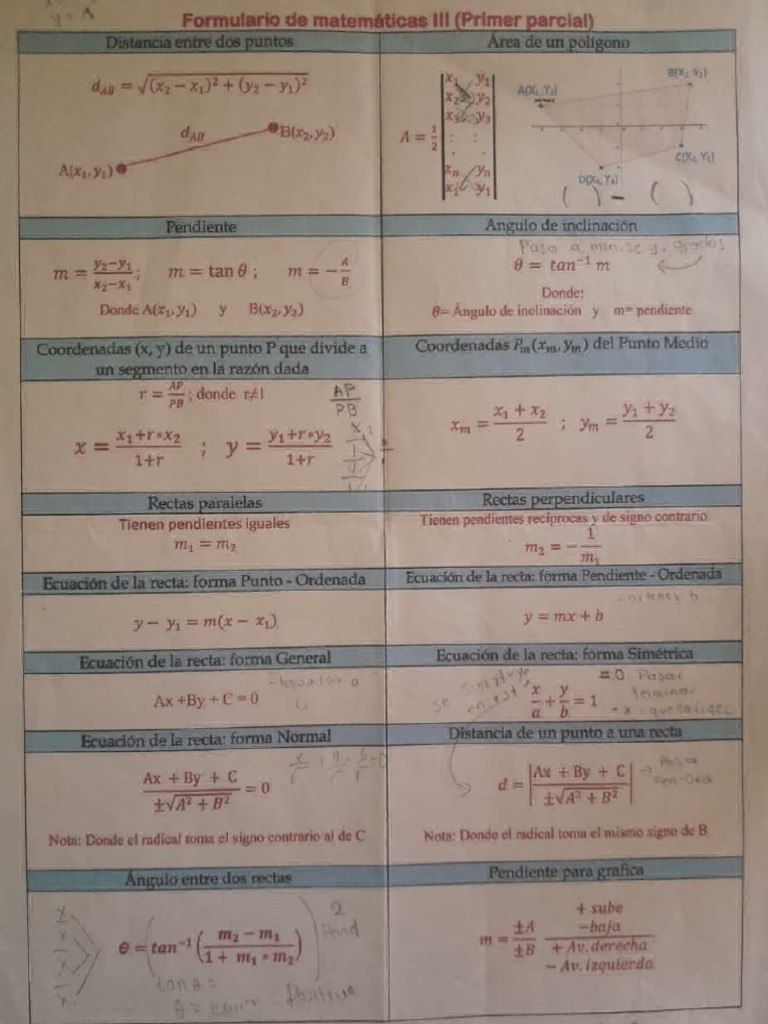 Formulario de matemáticas III (Primer parcial)
Distancia entre dos puntos
d_AB = √(x₂ − x₁)² + (y₂ − y₁)²
d_AB
B(x₂, y₂)
A(x₁, y₁)
Área de un polígono
A = 1/2 | x₁ y₁
x₂ y₂
x₃ y₃
: :
. .
xₙ yₙ
x₁ y₁ |
A(X₁, Y₁)
B(X₂, Y₂)
( ) − ( )
Pendiente
m = y₂−y₁/x₂−x₁ ; m = tan θ ; m = −A/B
Donde A(x₁, y₁) y B(x₂, y₂)
Angulo de inclinación
Pasa a min, se y, grados
θ = tan⁻¹ m
Donde:
θ= Ángulo de inclinación y m= pendiente
Coordenadas (x, y) de un punto P que divide a
un segmento en la razón dada
r = AP/PB ; donde r≠1
AP/PB
x = x₁+r•x₂/1+r ; y = y₁+r•y₂/1+r
Coordenadas Pₘ(xₘ, yₘ) del Punto Medio
xₘ = x₁ + x₂/2 ; yₘ = y₁ + y₂/2
Rectas paralelas
Tienen pendientes iguales
m₁ = m₂
Rectas perpendiculares
Tienen pendientes recíprocas y de signo contrario
m₂ = − 1/m₁
Ecuación de la recta: forma Punto - Ordenada
y − y₁ = m(x − x₁)
Ecuación de la recta: forma Pendiente - Ordenada
y = mx + b
Ecuación de la recta: forma General
Ax +By + C = 0
Ecuación de la recta: forma Simétrica
se sustituye
en est
x/a + y/b = 1
= 0 Pasar
termino
Ecuación de la recta: forma Normal
Ax + By + C/±√A² + B² = 0
Nota: Donde el radical toma el signo contrario al de C
Distancia de un punto a una recta
d = |Ax + By + C/±√A² + B²|
Nota: Donde el radical toma el mismo signo de B
Ángulo entre dos rectas
θ = tan⁻¹ (m₂ − m₁/1 + m₁ • m₂)
2
Pend
Positivo
tan θ =
θ = tan⁻¹
Pendiente para grafica
m = ±A/±B
+ sube
−baja
+ Av. derecha
− Av. Izquierda